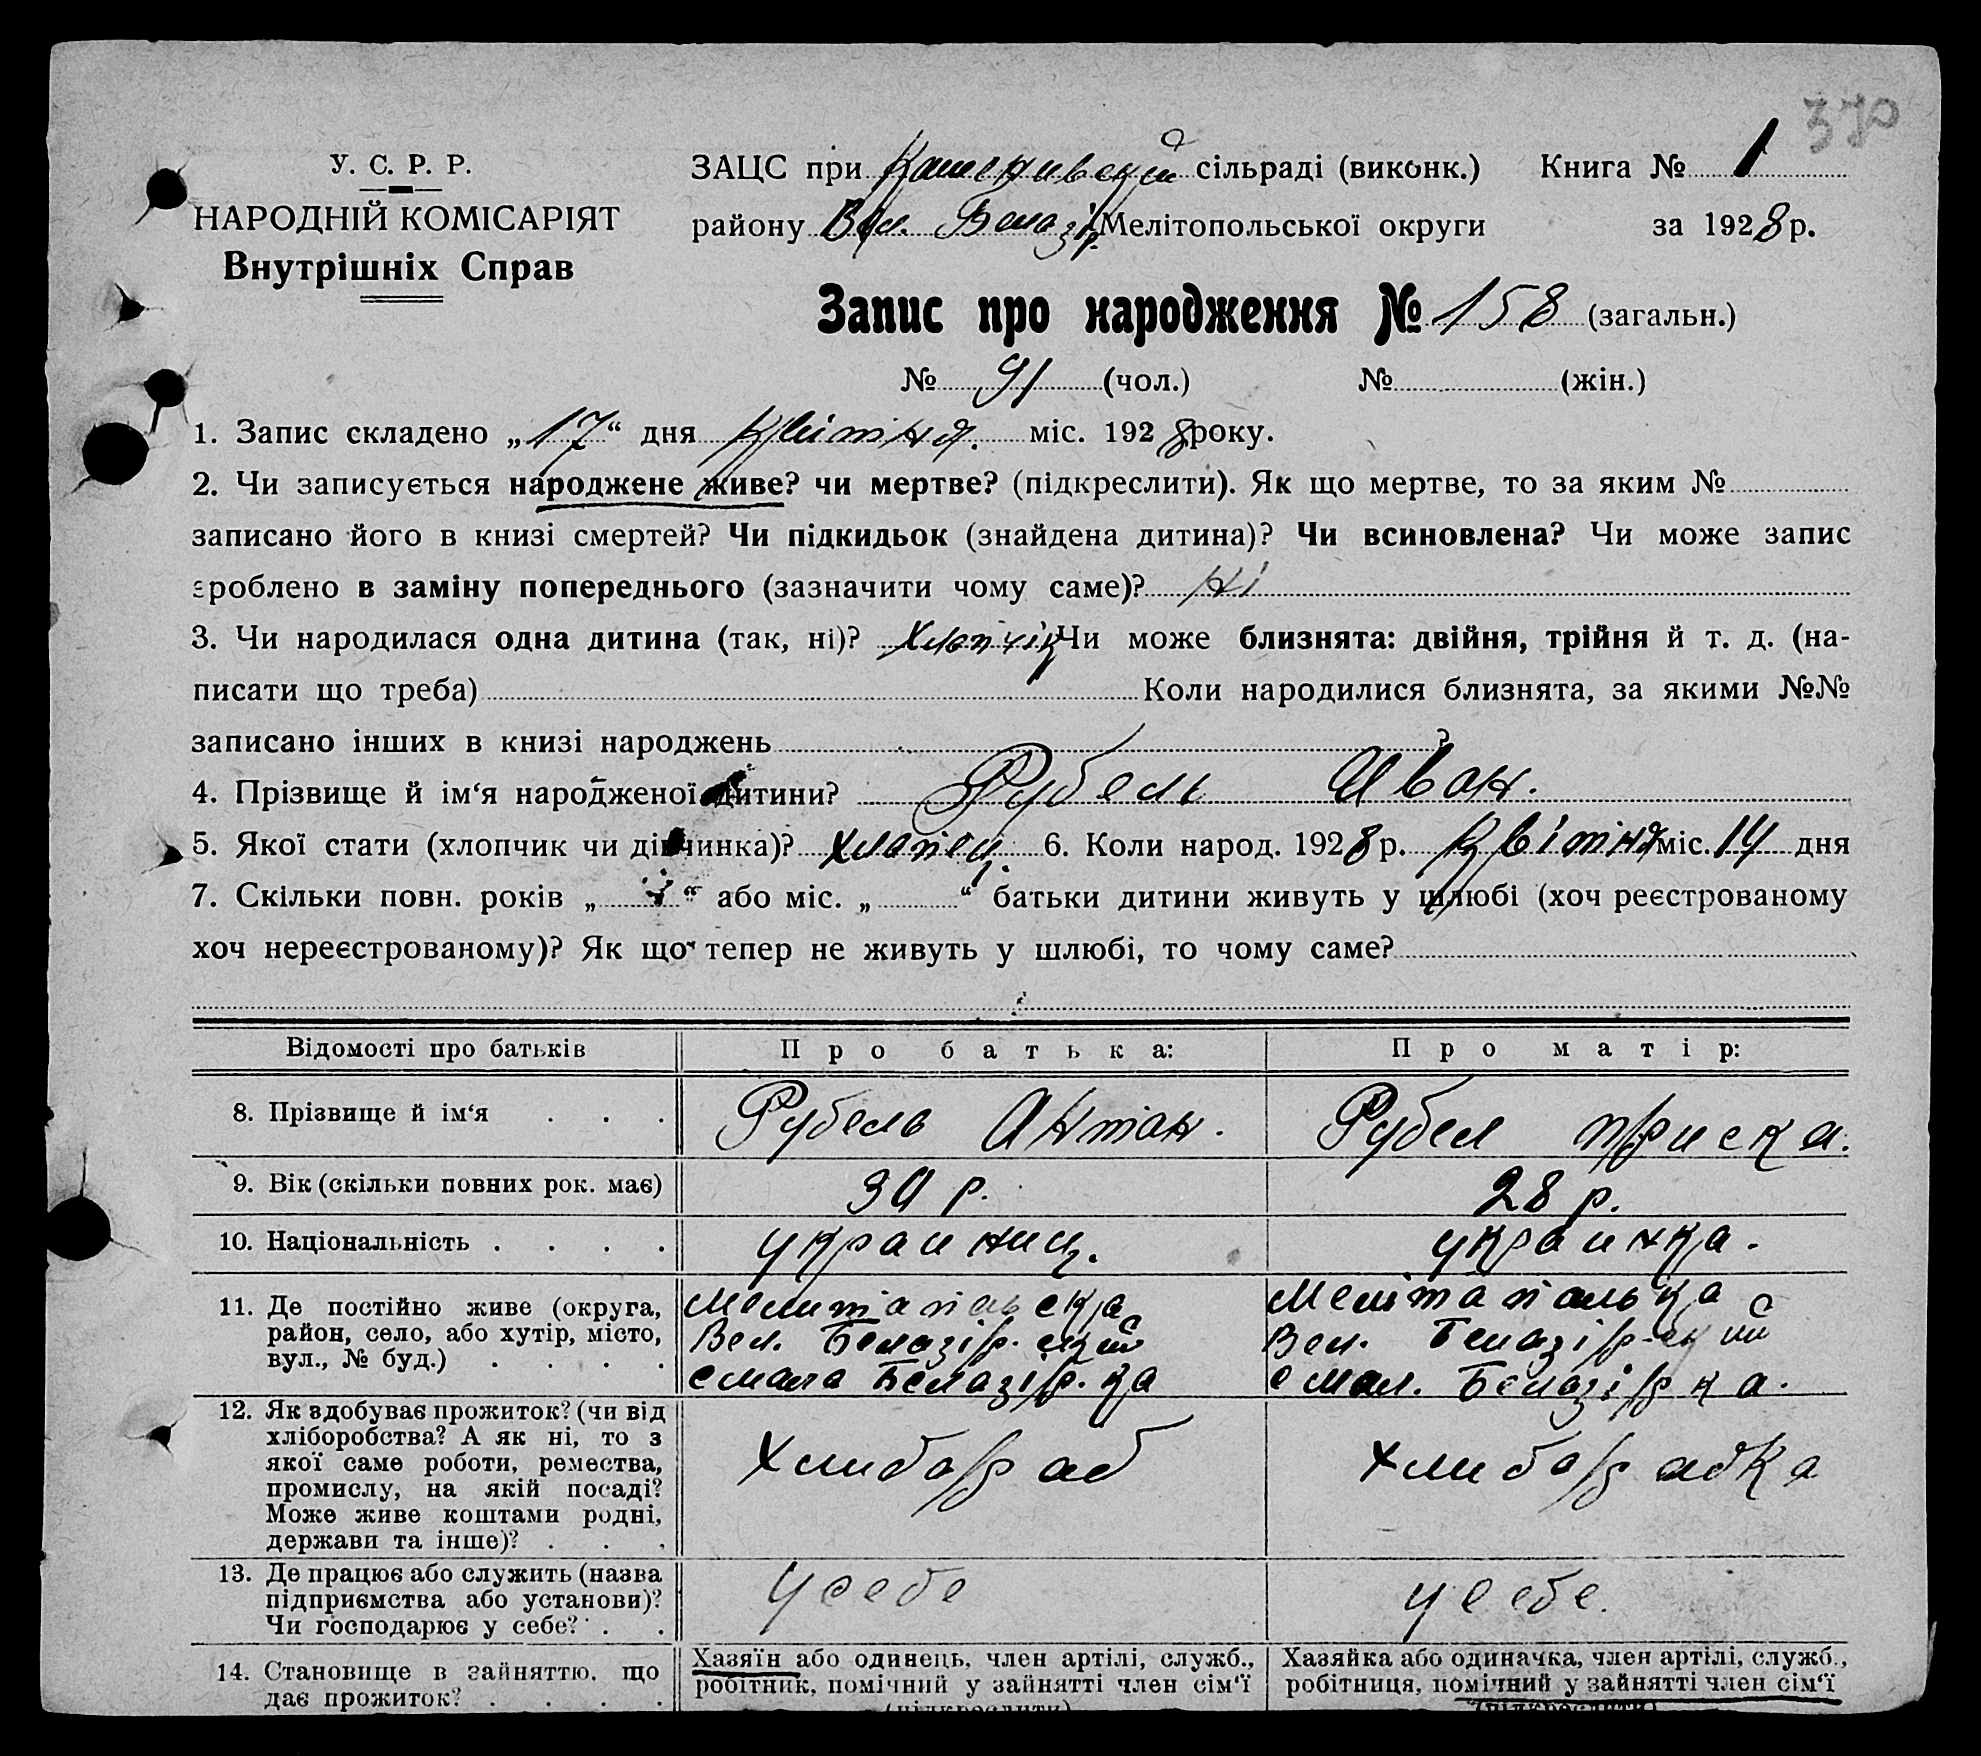 370
У. С. Р. Р.
НАРОДНІЙ КОМІСАРІЯТ
Внутрішніх Справ
ЗАЦС при сільраді (виконк.) Книга № 1
району Вел. Белазір. Мелітопольської округи за 1928 р.
Запис про народження № 158 (загальн.)
№ 91 (чол.) № (жін.)
1. Запис складено „17“ дня Квітня. міс. 1928 року.
2. Чи записується народжене живе? чи мертве? (підкреслити). Як що мертве, то за яким №
записано його в книзі смертей? Чи підкидьок (знайдена дитина)? Чи всиновлена? Чи може запис
зроблено в заміну попереднього (зазначити чому саме)? Ні
3. Чи народилася одна дитина (так, ні)? Хлопчік Чи може близнята: двійня, трійня й т. д. (на-
писати що треба) Коли народилися близнята, за якими №№
записано інших в книзі народжень ?
4. Прізвище й ім‘я народженої дитини? Рубель Иван.
5. Якої стати (хлопчик чи дівчинка)? хлапец 6. Коли народ. 1928 р. Квітня міс. 14 дня
7. Скільки повн. років „ “ або міс. „ “ батьки дитини живуть у шлюбі (хоч реєстрованому
хоч нереєстрованому)? Як що тепер не живуть у шлюбі, то чому саме?
Відомості про батьків Про батька: Про матір:
8. Прізвище й ім‘я . . . Рубель Антон. Рубел Приска.
9. Вік (скільки повних рок. має) 30 р. 28 р.
10. Національність . . . . украинец. украинка.
11. Де постійно живе (округа, Мелитапаьска Мелітапалька
район, село, або хутір, місто, Вел. Белазір. ский Вел. Белазір-ский
вул., № буд.) . . . . с мала Белазір.ка с мал. Белазірка.
12. Як здобуває прожиток? (чи від
хліборобства? А як ні, то з
якої саме роботи, ремества, Хлибараб Хлибарабка
промислу, на якій посаді?
Може живе коштами родні,
держави та інше)? . . .
13. Де працює або служить (назва усебе усебе.
підприємства або установи)?
Чи господарює у себе? . .
14. Становище в зайняттю, що Хазяїн або одинець, член артілі, служб., Хазяйка або одиначка, член артілі, служб.,
дає прожиток? . . . . робітник, помічний у зайнятті член сім‘ї робітниця, помічний у зайнятті член сім‘ї
(підкреслити) (підкреслити)